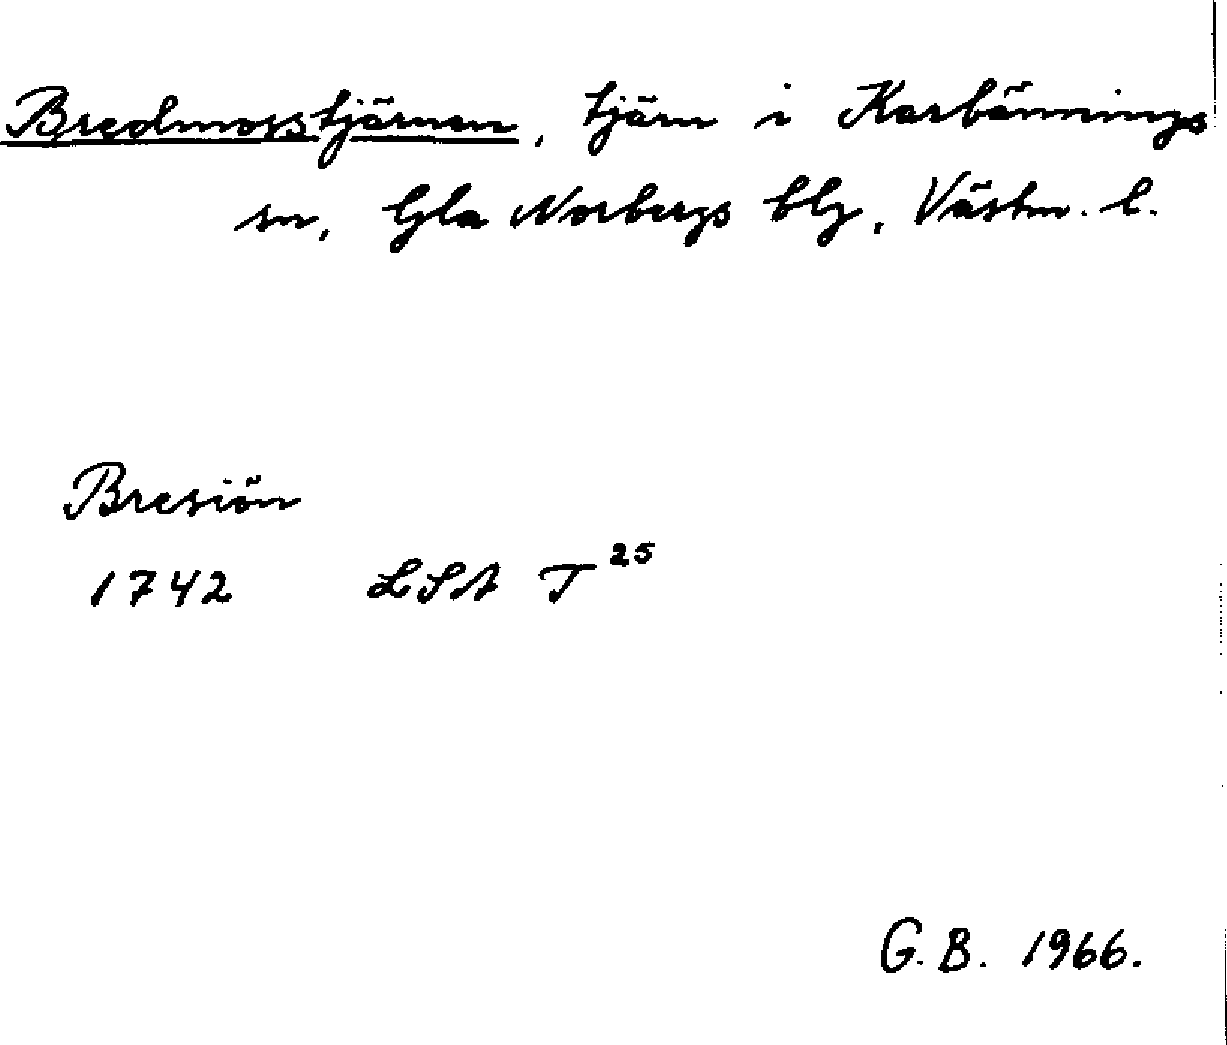 Bredmosstjärnen, tjärn i Karbennings
sn, Gla Norbergs blg, Västm. l.
Bresiön
1742 LSA T 25
G. B. 1966.